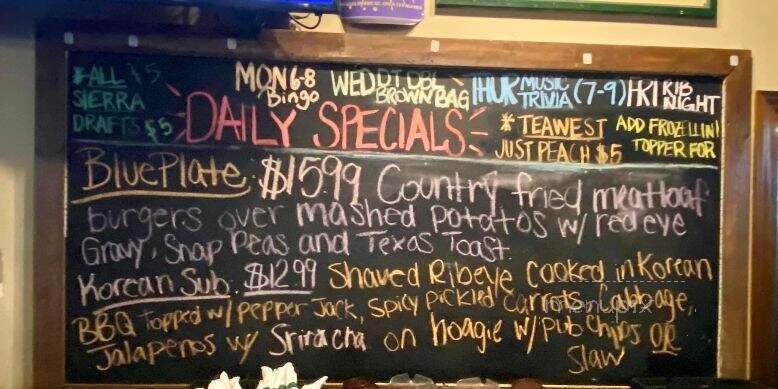 *ALL $5
SIERRA
DRAFTS $5
MON 6-8
Bingo
WED DT DBL
BROWN BAG
THUR MUSIC
TRIVIA (7-9)
FRI RIB
NIGHT
DAILY SPECIALS
* TEAWEST
JUST PEACH $5
ADD FROZELLINI
TOPPER FOR
BluePlate $15.99 Country fried meatloaf
burgers over mashed potatos w/ red eye
Gravy, Snap Peas and Texas Toast.
Korean Sub. $12.99 Shaved Ribeye cooked in Korean
BBQ topped w/ pepper Jack, spicy pickled carrots, Cabbage,
Jalapenos w/ Sriracha on hoagie w/ pub chips OR
Slaw
menupix